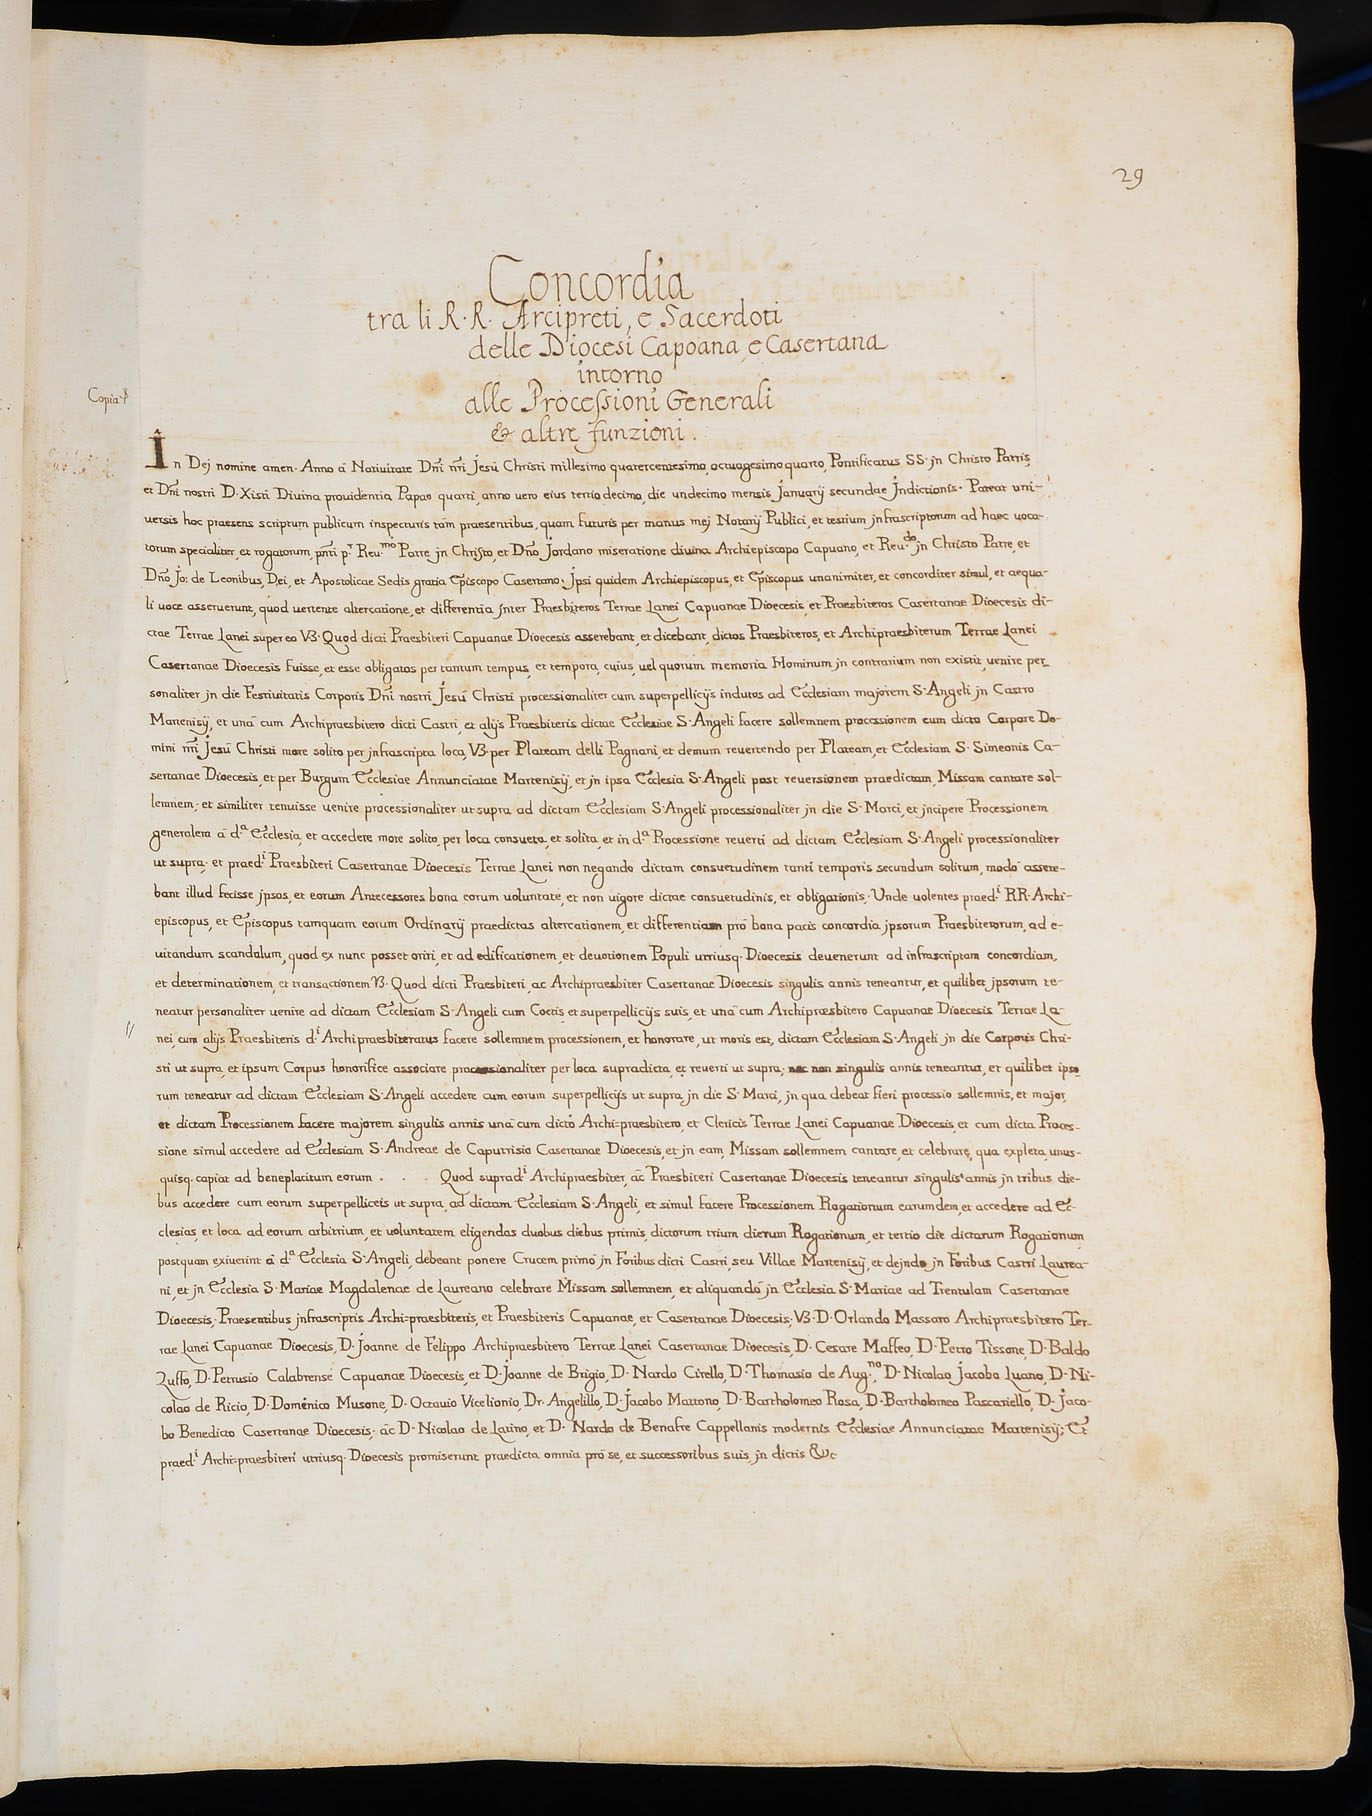 29
Concordia
tra li R·R· Arcipreti, e Sacerdoti
delle Diocesi Capoana, e Casertana
intorno
Copia
alle Processioni Generali
& altre funzioni.
In Dej nomine amen· Anno à Natiuitate Dñi nři Jesù Christi millesimo quatercentesimo, octuagesimo quarto, Pontificatus SS· jn Christo Patris,
et Dñi nostri D· Xisti Diuina prouidentia Papae quarti, anno uero eius tertio decimo, die undecimo mensis Januarij secundae Jndictionis· Pateat uni-
uersis hoc praesens scriptum publicum inspecturis tàm praesentibus, quam futuris per manus mej Notarij Publici, et testium jnfrascriptorum ad haec uoca-
torum specialiter, et rogatorum, pñti pr Reu.mo Patre jn Christo, et Dño Jordano miseratione diuina Archiepiscopo Capuano, et Reu.do jn Christo Patre, et
Dño Jo: de Leonibus, Dei, et Apostolicae Sedis gratia Episcopo Casertano· Jpsi quidem Archiepiscopus, et Episcopus unanimiter, et concorditer simul, et aequa-
li uoce asseruerunt, quod uertente altercatione, et differentia jnter Praesbiteros Terrae Lanei Capuanae Dioecesis, et Praesbiteros Casertanae Dioecesis di-
ctae Terrae Lanei super eo V3· Quod dicti Praesbiteri Capuanae Dioecesis asserebant, et dicebant, dictos Praesbiteros, et Archipraesbiterum Terrae Lanei
Casertanae Dioecesis fuisse, et esse obligatos per tantum tempus, et tempora, cuius, uel quorum memoria Hominum jn contrarium non existit, uenire per
sonaliter jn die Festiuitatis Corporis Dñi nostri Jesù Christi processionaliter cum superpellicijs indutos ad Ecclesiam majorem S· Angeli jn Castro
Martenisij, et unà cum Archipraesbitero dicti Castri, et alijs Praesbiteris dictae Ecclesiae S· Angeli facere sollemnem processionem cum dicto Corpore Do-
mini nři Jesù Christi more solito per jnfrascripta loca, V3· per Plateam delli Pagnani, et demum reuertendo per Plateam, et Ecclesiam S· Simeonis Ca-
sertanae Dioecesis, et per Burgum Ecclesiae Annunciatae Martenisij, et jn ipsa Ecclesia S· Angeli post reuersionem praedictam, Missam cantare sol-
lemnem; et similiter tenuisse uenire processionaliter ut supra ad dictam Ecclesiam S· Angeli processionaliter jn die S· Marci, et jncipere Processionem
generalem à d.a Ecclesia, et accedere more solito, per loca consueta, et solita, et in d.a Processione reuerti ad dictam Ecclesiam S· Angeli processionaliter
ut supra; et praed.i Praesbiteri Casertanae Dioecesis Terrae Lanei non negando dictam consuetudinem tanti temporis secundum solitum, modò assere-
bant illud fecisse jpsos, et eorum Antecessores bona eorum uoluntate, et non uigore dictae consuetudinis, et obligationis· Unde uolentes praed.i RR· Archi-
episcopus, et Episcopus tamquam eorum Ordinarij praedictas altercationem, et differentiam prò bona pacis concordia jpsorum Praesbiterorum, ad e-
uitandum scandalum, quod ex nunc posset oriri, et ad edificationem, et deuotionem Populi utriusq· Dioecesis deuenerunt ad infrascriptam concordiam,
et determinationem, et transactionem V3· Quod dicti Praesbiteri, ac Archipraesbiter Casertanae Dioecesis singulis annis teneantur, et quilibet jpsorum te-
neatur personaliter uenire ad dictam Ecclesiam S· Angeli cum Coctis, et superpellicijs suis, et unà cum Archipraesbitero Capuanae Dioecesis Terrae La-
nei, cum alijs Praesbiteris d.i Archipraesbiteratus facere sollemnem processionem, et honorare, ut moris est, dictam Ecclesiam S· Angeli jn die Corporis Chri-
sti ut supra, et ipsum Corpus honorifice associare processionaliter per loca supradicta, et reuerti ut supra; nec non singulis annis teneantur, et quilibet ipso
rum teneatur ad dictam Ecclesiam S· Angeli accedere cum eorum superpellicijs ut supra jn die S· Marci, jn qua debeat fieri processio sollemnis, et major,
et dictam Processionem facere majorem singulis annis unà cum dicto Archi=praesbitero, et Clericis Terrae Lanei Capuanae Dioecesis, et cum dicta Proces-
sione simul accedere ad Ecclesiam S· Andreae de Caputrisio Casertanae Dioecesis, et jn eam, Missam sollemnem cantare, et celebrare, qua expleta, unus-
quisq· capiat ad beneplacitum eorum . . . Quod suprad.i Archipraesbiter, àc Praesbiteri Casertanae Dioecesis teneantur singulis annis jn tribus die-
bus accedere cum eorum superpelliceis ut supra, ad dictam Ecclesiam S· Angeli, et simul facere Processionem Rogationum earumdem, et accedere ad Ec-
clesias, et loca ad eorum arbitrium, et uoluntatem eligendas duobus diebus primis, dictorum trium dierum Rogationum, et tertio die dictarum Rogationum
postquam exiuerint à d.a Ecclesia S· Angeli, debeant ponere Crucem primò jn Foribus dicti Castri, seu Villae Martenisij, et dejnde jn Foribus Castri Laurea-
ni, et jn Ecclesia S· Mariae Magdalenae de Laureano celebrare Missam sollemnem, et aliquandò jn Ecclesia S· Mariae ad Trentulam Casertanae
Dioecesis· Praesentibus jnfrascriptis Archi=praesbiteris, et Praesbiteris Capuanae, et Casertanae Dioecesis; V3· D· Orlando Massaro Archipraesbitero Ter-
rae Lanei Capuanae Dioecesis, D· Joanne de Felippo Archipraesbitero Terrae Lanei Casertanae Dioecesis, D· Cesare Maffeo, D· Petro Tissone, D· Baldo
Zuffo, D· Petrusio Calabrense Capuanae Dioecesis, et D· Joanne de Brigio, D· Nardo Cirello, D· Thomasio de Aug.no, D· Nicolao Jacobo Luano, D· Ni-
colao de Ricio, D· Domenico Musone, D· Octauio Vicelionio, Dr· Angelillo, D· Jacobo Martono, D· Bartholomeo Rosa, D· Bartholomeo Pascariello, D· Jaco-
bo Benedicto Casertanae Dioecesis· àc D· Nicolao de Latino, et D· Nardo de Benafre Cappellanis modernis Ecclesiae Annunciatae Martenisij; Et
praed.i Archi=praesbiteri utriusq· Dioecesis promiserunt praedicta omnia prò se, et successoribus suis, jn dictis &c